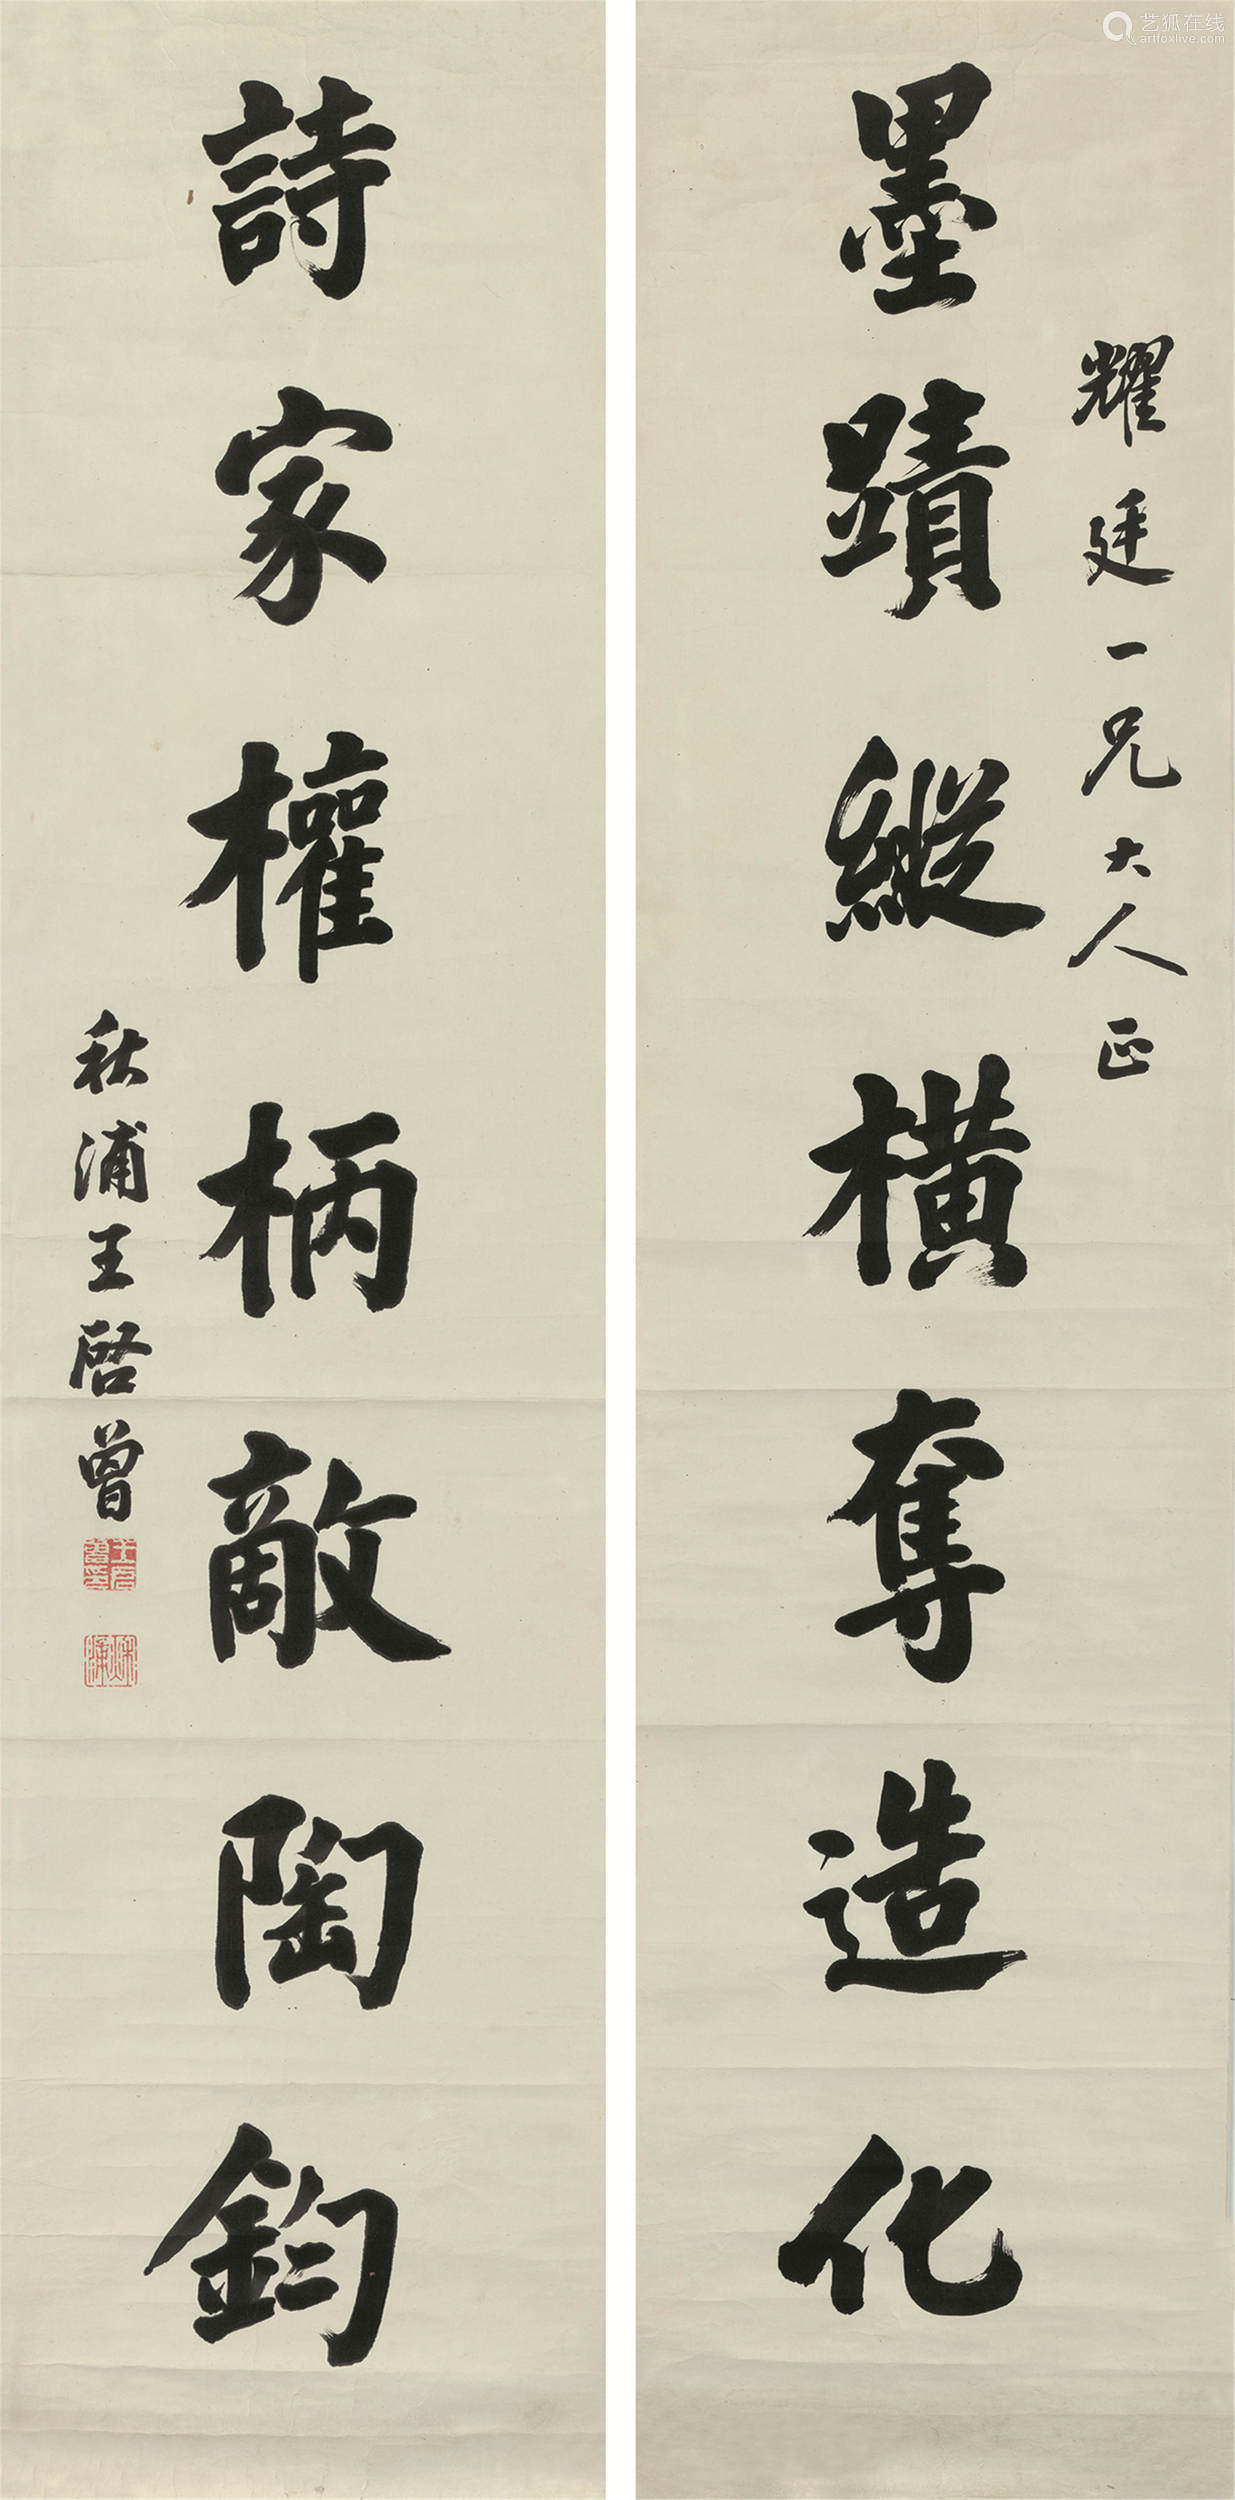 艺狐在线
artfoxlive.com
耀廷一兄大人正
墨蹟縱橫奪造化
詩家權柄敵陶鈞
秋浦王啓曾